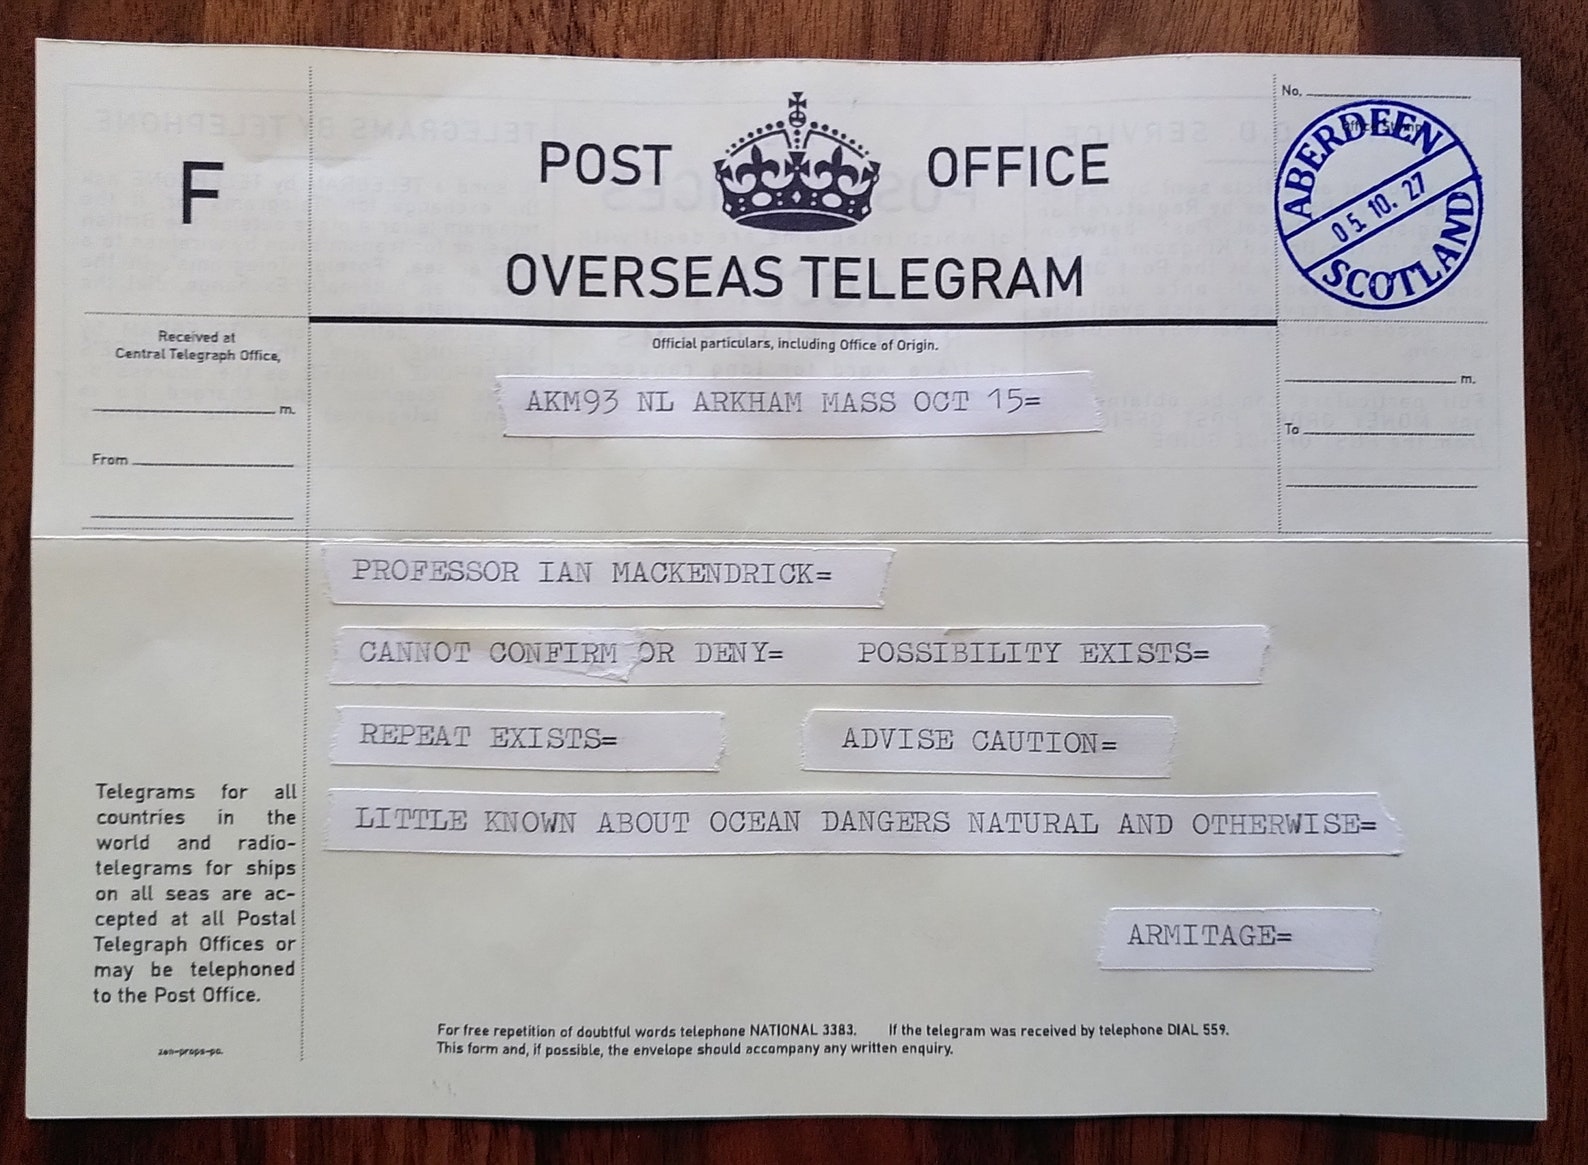 F
POST OFFICE
OVERSEAS TELEGRAM
No.
ABERDEEN
05. 10. 27
SCOTLAND
Received at
Central Telegraph Office,
m.
From
Official particulars, including Office of Origin.
AKM93 NL ARKHAM MASS OCT 15=
m.
To
PROFESSOR IAN MACKENDRICK=
CANNOT CONFIRM OR DENY= POSSIBILITY EXISTS=
REPEAT EXISTS= ADVISE CAUTION=
LITTLE KNOWN ABOUT OCEAN DANGERS NATURAL AND OTHERWISE=
ARMITAGE=
Telegrams for all
countries in the
world and radio-
telegrams for ships
on all seas are ac-
cepted at all Postal
Telegraph Offices or
may be telephoned
to the Post Office.
zen-props-po.
For free repetition of doubtful words telephone NATIONAL 3383. If the telegram was received by telephone DIAL 559.
This form and, if possible, the envelope should accompany any written enquiry.